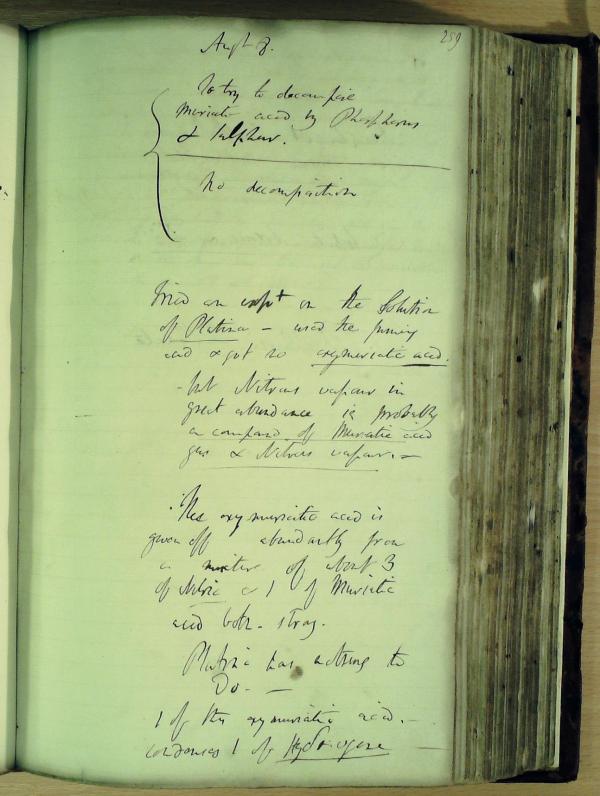 259
Augt 8.
To try to decompose
Muriatic acid by Phosphorus
& Sulphur.
No decomposition
Tried an expt on the Solution
of Platina - used the fuming
acid & got no oxymuriatic acid.
- but Nitrous vapour in
great abundance is probably
a compound of Muriatic acid
gas & Nitrous vapour. -
The oxymuriatic acid is
given off abundantly from
a mixture of about 3
of Nitric & 1 of Muriatic
acid both - strong.
Platina has nothing to
Do. -
1 of the oxymuriatic acid. -
condenses 1 of Hydrogene